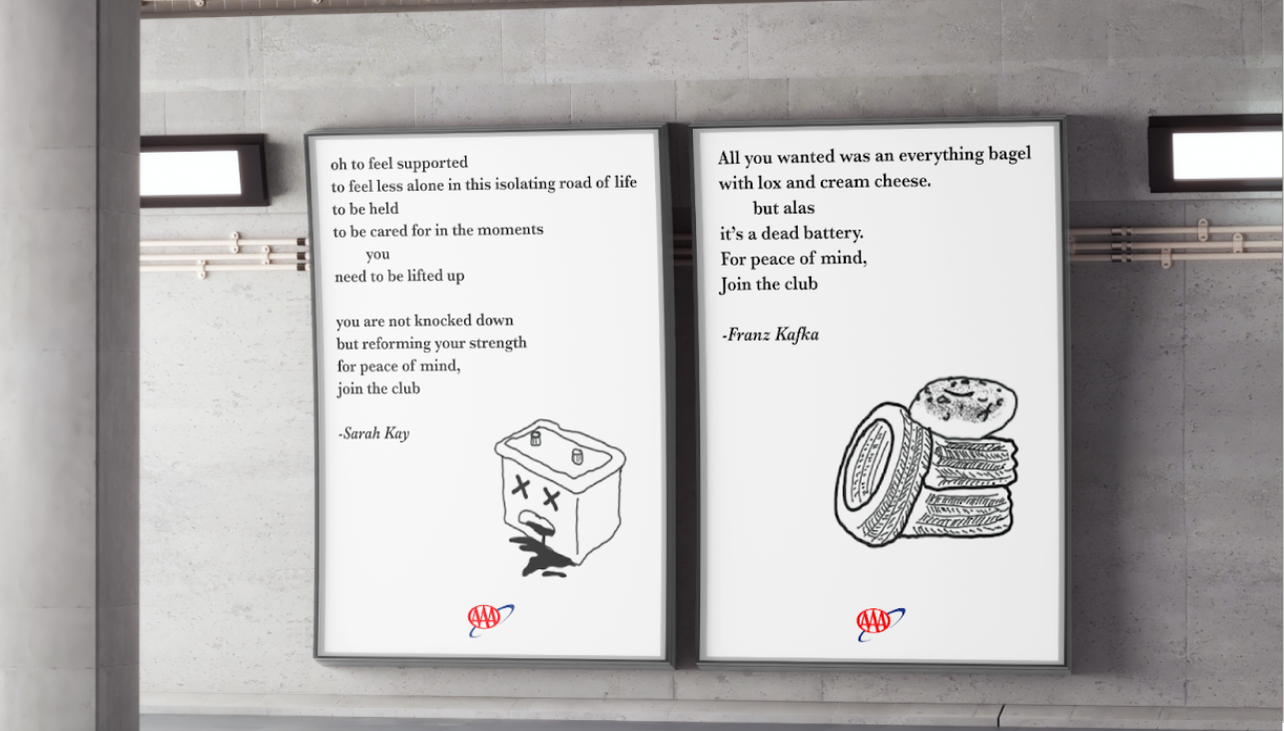 oh to feel supported
to feel less alone in this isolating road of life
to be held
to be cared for in the moments
you
need to be lifted up
you are not knocked down
but reforming your strength
for peace of mind,
join the club
-Sarah Kay
AAA
All you wanted was an everything bagel
with lox and cream cheese.
but alas
it's a dead battery.
For peace of mind,
Join the club
-Franz Kafka
AAA